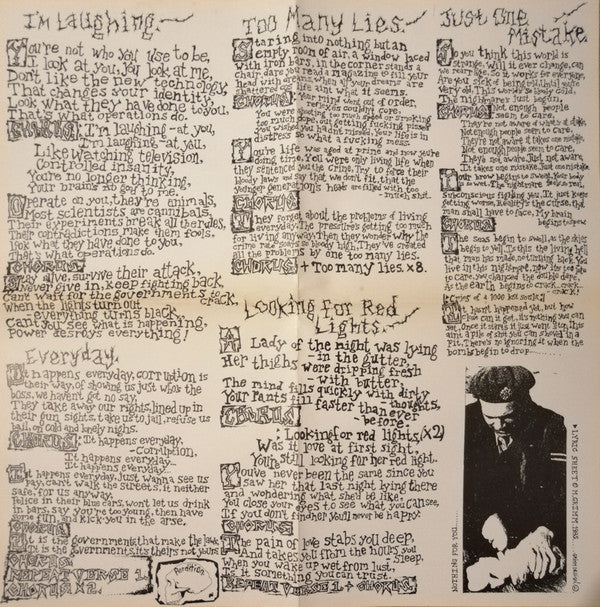 I'm Laughing.
You're not who you use to be,
I look at you, you look at me,
Don't like the new technology,
That changes your identity,
Look what they have done to you,
That's what operations do.
CHORUS: I'm laughing - at you,
I'm laughing - at you,
Like watching television,
Controlled insanity,
You're no longer thinking,
Your brains
Operate on you, they're animals,
Most scientists are cannibals,
Their experiments break all the rules,
Their contradictions make them fools.
Look what they have done to you,
That's what operations do.
CHORUS:
survive their attack,
Never give in, keep fighting back,
Can't wait for the governments
When the lights turn
- everything turns black,
Can't you see what is happening,
Power destroys everything!
Everyday.
It happens everyday, corruption is
their way, of showing us just who's the
boss, we haven't got no say,
They take away our rights, lined up in
their gun sights, take us to jail, refuse us
bail, of cold and lonely nights.
CHORUS: It happens everyday,
- Corruption.
It happens everyday..
It happens everyday...
It happens everyday, just wanna see us
pay, can't walk the streets, it neither
safe, for us anyway,
Police in their blue cars, won't let us drink
in bars, say you're too young, then have
fun, and kick you in the arse.
CHORUS
It is the governments that make the law
It is the governments, its theirs not yours
CHORUS.
REPEAT VERSE 1.
CHORUS X2.
Too Many Lies.
Staring into nothing but an
empty room of air, a window laced
with iron bars, in the corner stands a
chair, dare you read a magazine to fill your
mind with dreams,
life aint what it seems.
CHORUS: Your mind went out of order,
reflexes couldn't care,
You were
too much dope, not getting fucking pissed
You wished you hadn't missed, Your life is in
distress & what a fucking mess.
Your life was aged at prime and so you're
doing time, You were only living life when
they sentenced you the crime, Try to force their
bloody laws and say that we don't fit, then the
younger generation's heads are filled with too
- much shit.
CHORUS
They forget about the problems of living
everyday, The pressure's getting too much
for living anyway, Then they wonder why the
crime rate soars so bloody high, They've created
all the problems by one too many lies.
CHORUS + Too many lies. x8.
Looking for Red
Lights.
A Lady of the night was lying
- in the gutter,
Her thighs were dripping fresh
- with butter,
The mind fills quickly with dirty
- thoughts,
Your pants fill faster than ever
- before
CHORUS
: Looking for red lights, (X2)
Was it love at first sight,
You're still looking for her red light.
You've never been the same since you
saw her that first night lying there
and wondering what she'd be like,
You close your eyes to see what you can see,
If you don't find her you'll never be happy.
CHORUS
The pain of love stabs you deep,
And takes you from the hours you
Sleep,
When you wake up wet from lust,
Is it something you can trust.
REPEAT VERSE 1 + CHORUS.
Just One
Mistake.
Do you think this world is
strange, Will it ever change, can
we rearrange, So it works for everyone,
The nightmare's just begun,
CHORUS: Not enough people
seem to care,
Not enough people seem to care,
They're not aware,
Not enough people seem to care,
They're not aware, Just not aware,
It takes one mistake, Just one mistake
Your brow begins to sweat,
so wet, The nightmare seems so real,
subconscious fighting you, It just keeps
getting worse,
man shall have to face, My brain
begins to spew
CHORUS.
The seas begin to swell, as the skies
begin to yell,
that man has made, no turning back
live in this nightmare, now its too late
to care,
As the earth begins to crack...
It hasn't happened yet, but how
low can it get, its nothing you can
Fit, There's no ignoring it when the
bombs begin to drop
NOTHING FOR YOU
Perdition